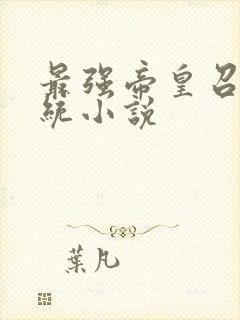 最强帝皇召
统小说
葉凡